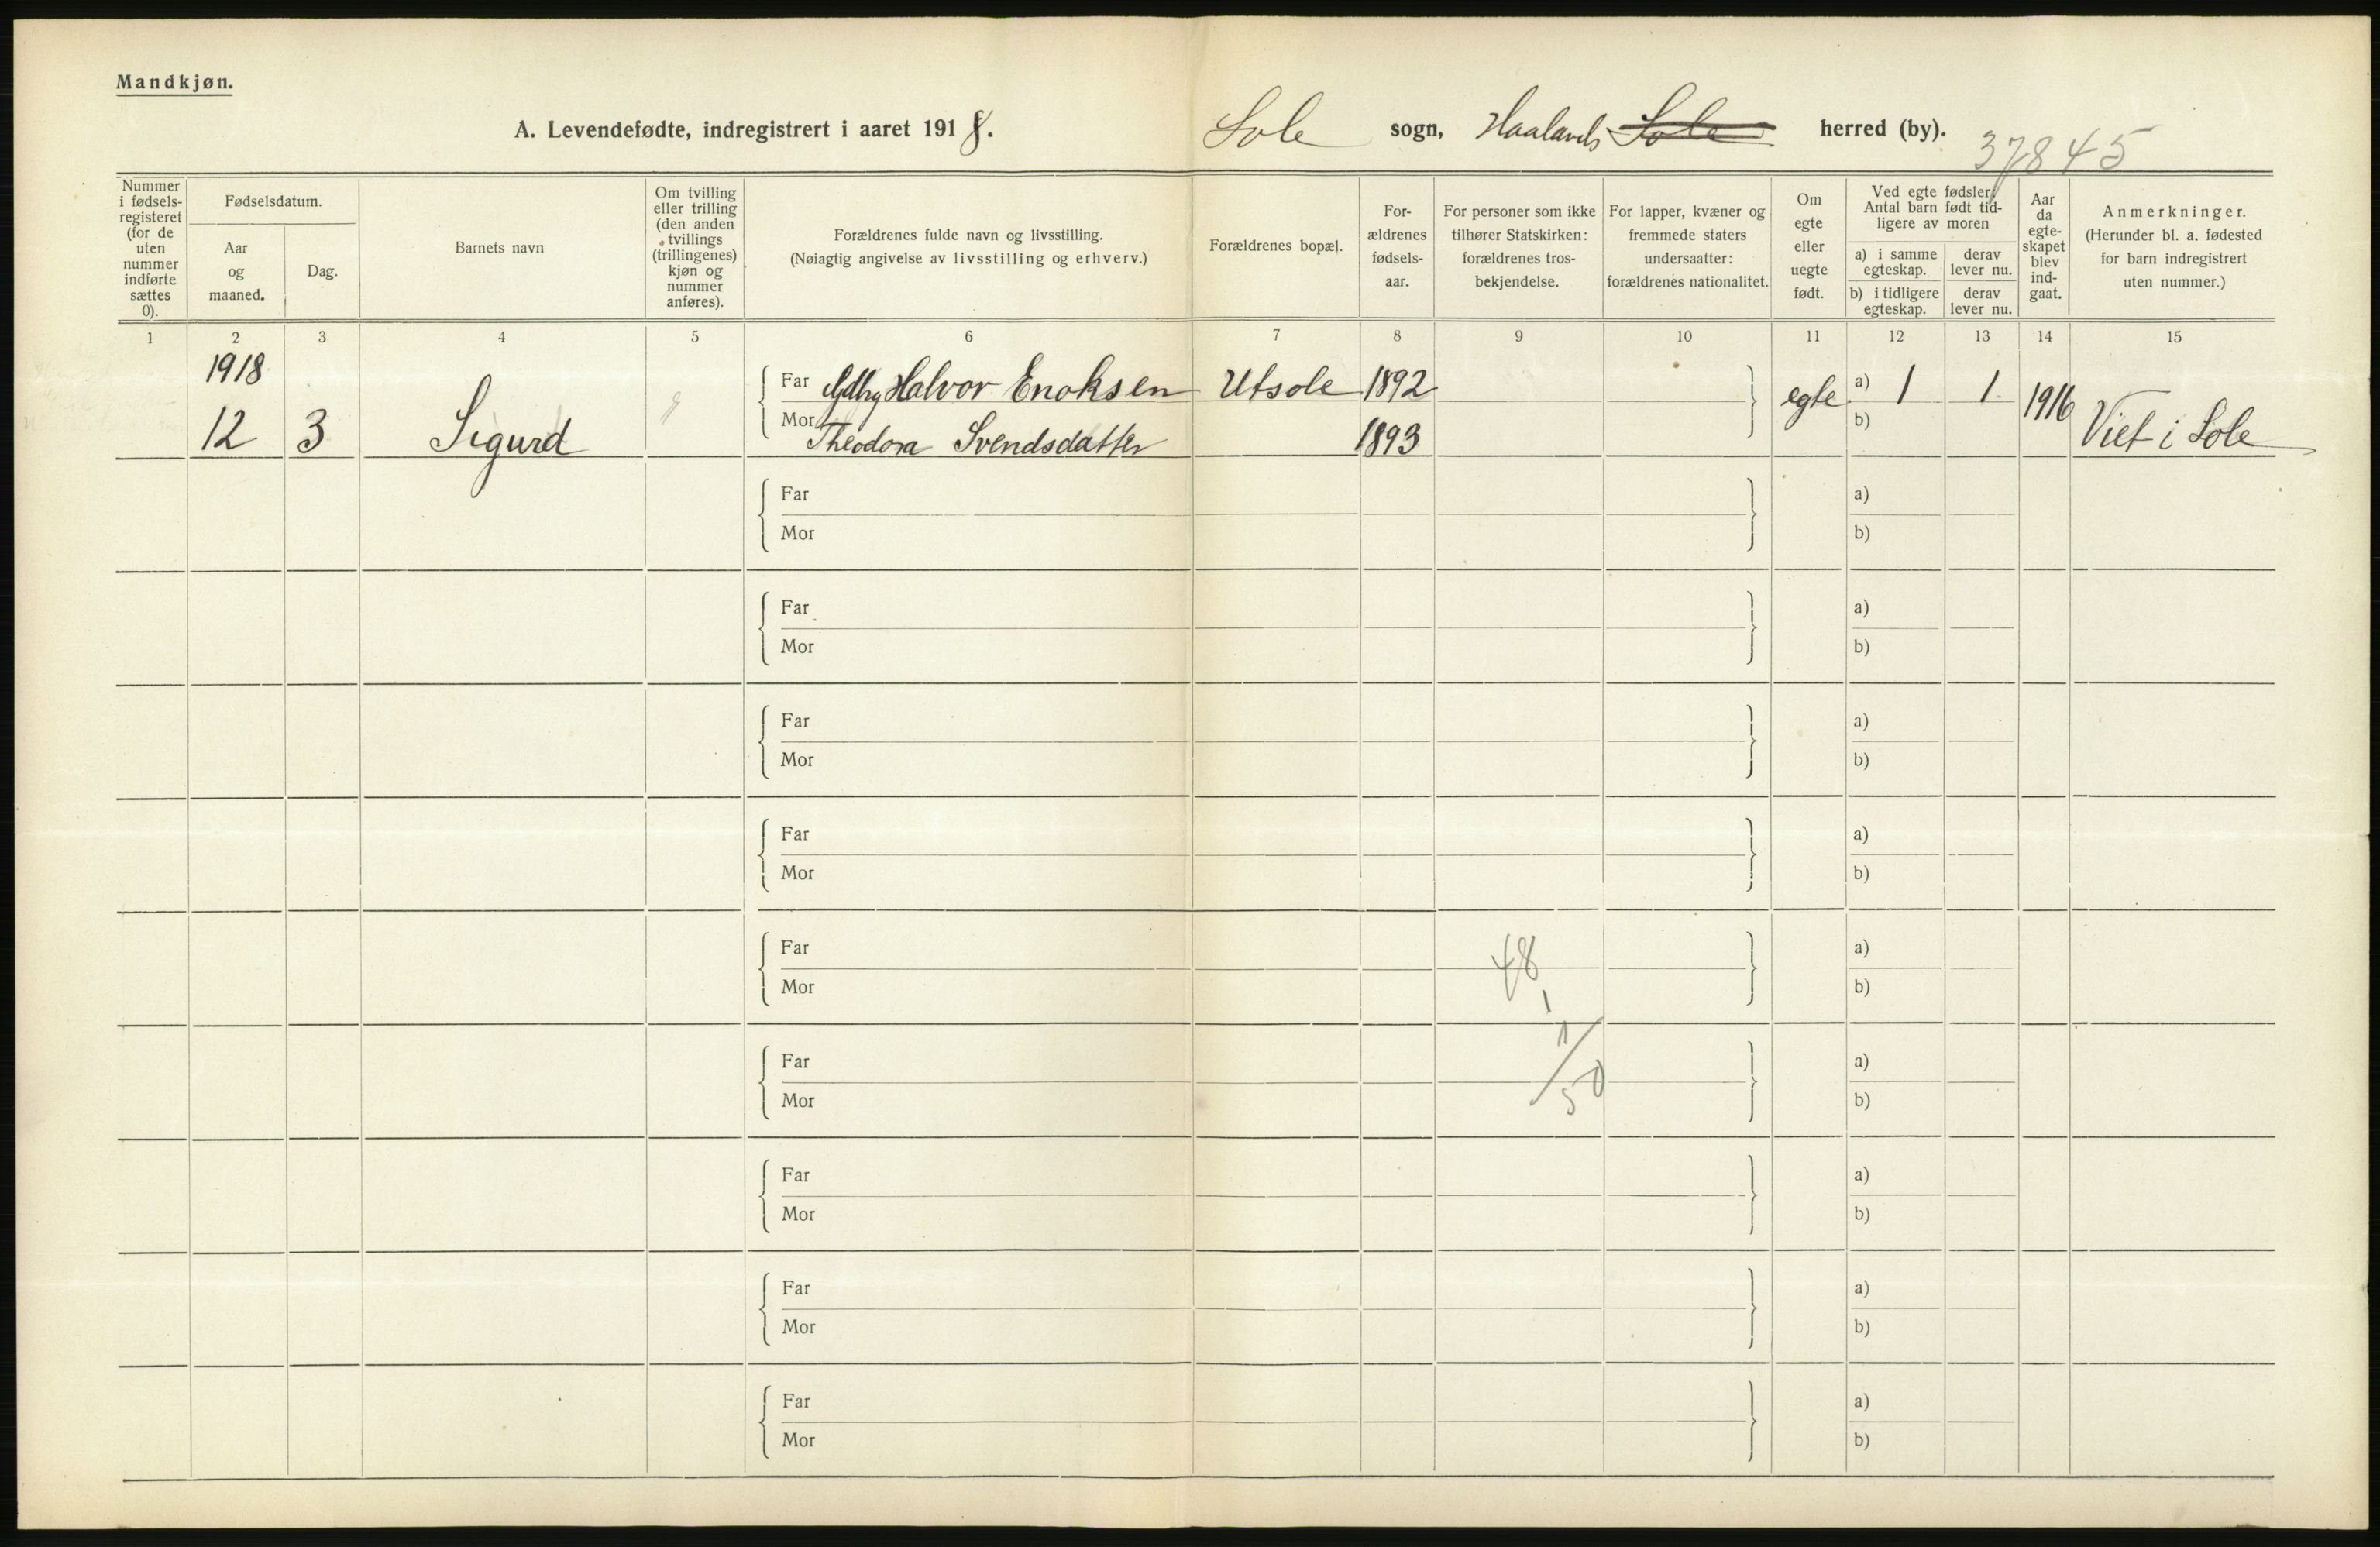 Mandkjøn.
A. Levendefødte, indregistrert i aaret 1918. Sole sogn, Haalands Sole herred (by).
37845
Nummer i fødsels-registeret (for de uten nummer indførte sættes 0).
Fødselsdatum.
Aar og maaned.
Dag.
Barnets navn
Om tvilling eller trilling (den anden tvillings (trillingenes) kjøn og nummer anføres).
Forældrenes fulde navn og livsstilling.
(Nøiagtig angivelse av livsstilling og erhverv.)
Forældrenes bopæl.
For-ældrenes fødsels-aar.
For personer som ikke tilhører Statskirken: forældrenes tros-bekjendelse.
For lapper, kvæner og fremmede staters undersaatter: forældrenes nationalitet.
Om egte eller uegte født.
Ved egte fødsler: Antal barn født tid-ligere av moren
a) i samme egteskap.
derav lever nu.
b) i tidligere egteskap.
derav lever nu.
Aar da egte-skapet blev ind-gaat.
Anmerkninger.
(Herunder bl. a. fødested for barn indregistrert uten nummer.)
1 2 3 4 5 6 7 8 9 10 11 12 13 14 15
1918
Far Halvor Enoksen Utsole 1892 egte a) 1 1 1916
12 3 Sigurd Mor Theodora Svendsdatter 1893 b) i Sole
Far a)
Mor b)
Far a)
Mor b)
Far a)
Mor b)
Far a)
Mor b)
Far 48 a)
Mor 1 b)
Far a)
Mor 50 b)
Far a)
Mor b)
Far a)
Mor b)
Far a)
Mor b)